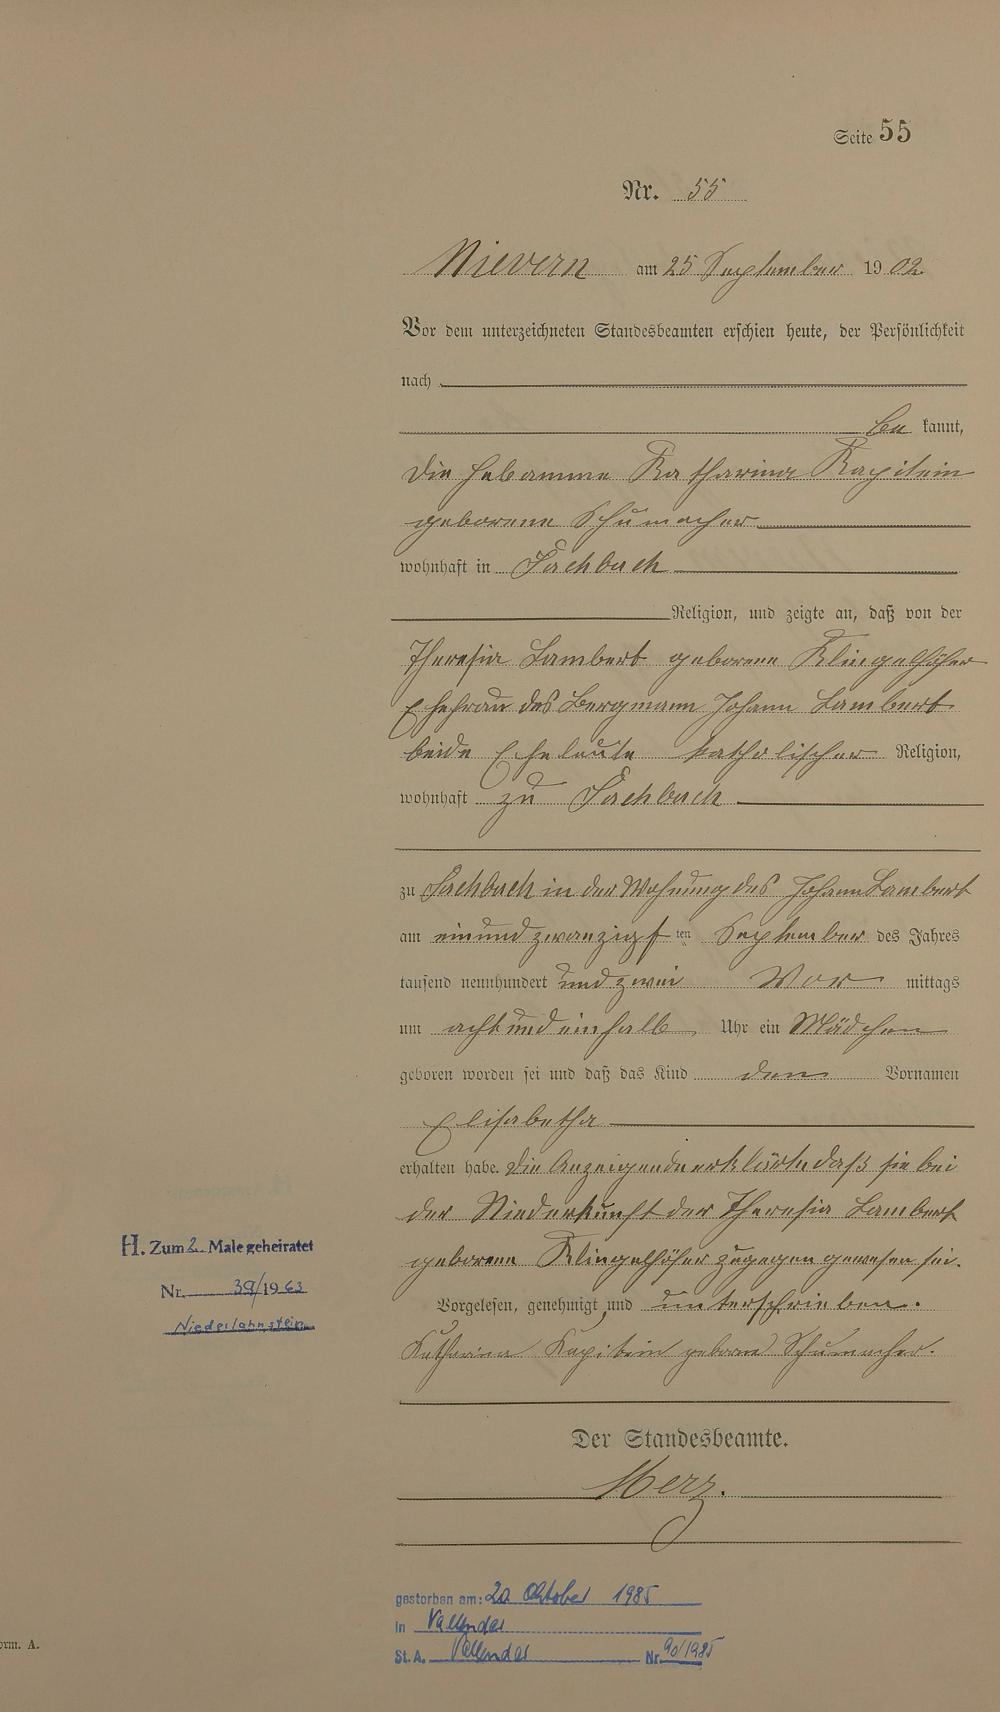 Seite 55
Nr. 55
Nievern am 25 September 1902.
Vor dem unterzeichneten Standesbeamten erschien heute, der Persönlichkeit
nach
be kannt,
die Hebamme Katharina Kapitein
geborene Schumacher
wohnhaft in Fachbach
Religion, und zeigte an, daß von der
Theresia Lambert geborene Klingelhöfer
Ehefrau des Bergmann Johann Lambert
beide Eheleute katholischer Religion,
wohnhaft zu Fachbach
zu Fachbach in der Wohnung des Johann Lambert
am einundzwanzigsten September des Jahres
tausend neunhundert und zwei Vor mittags
um acht und einhalb Uhr ein Mädchen
geboren worden sei und daß das Kind den Vornamen
Elisabetha
erhalten habe. Die Anzeigende erklärte daß sie bei
der Niederkunft der Theresia Lambert
geborene Klingelhöfer zugegen gewesen sei.
Vorgelesen, genehmigt und unterschrieben.
Katharina Kapitein geborene Schumacher.
Der Standesbeamte.
Merz.
H. Zum 2. Male geheiratet
Nr. 39/1963
Niederlahnstein
gestorben am: 20. Oktober 1985
in Vallendar
St. A. Vallendar Nr. 90/1985
orm. A.